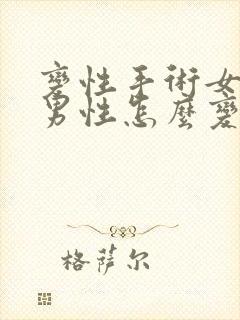 變性手術女
男性怎麼變
格萨尔